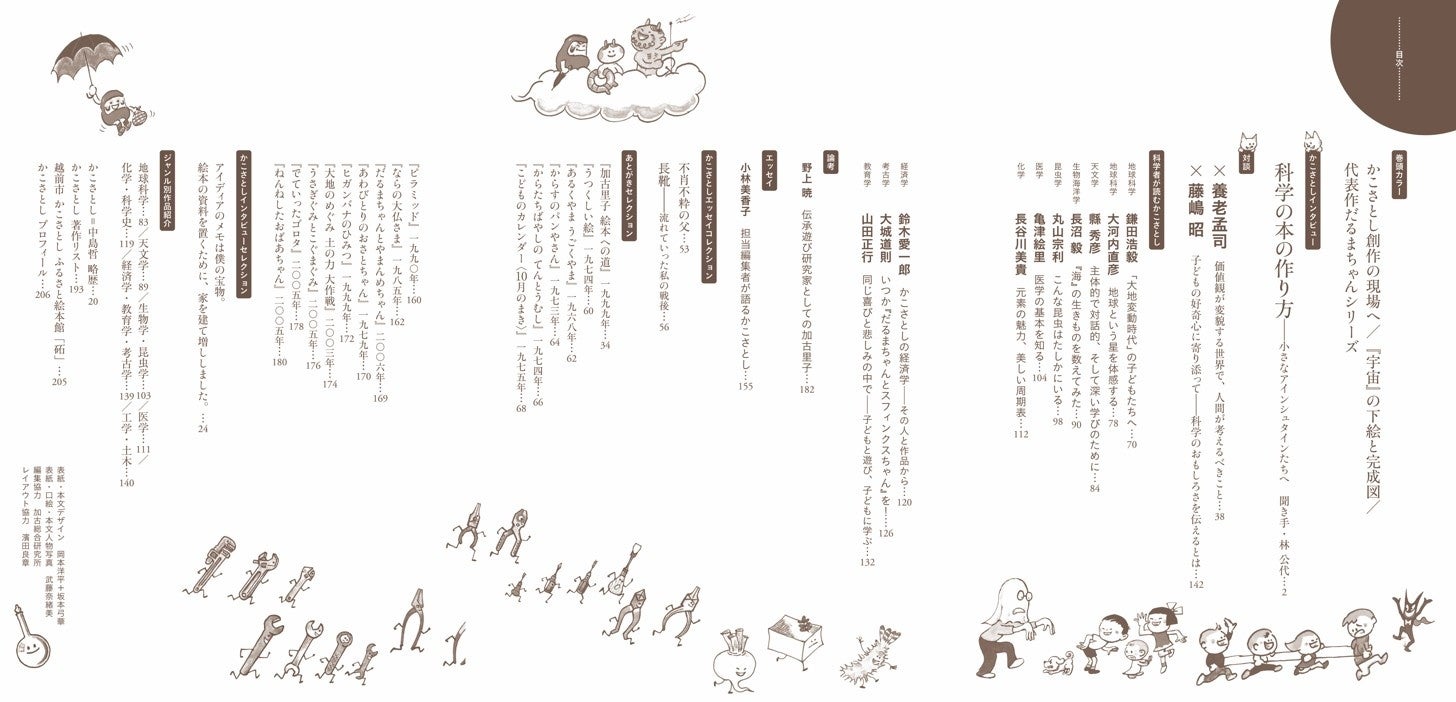 目次
巻頭カラー
かこさとし創作の現場へ／『宇宙』の下絵と完成図／
代表作だるまちゃんシリーズ
かこさとしインタビュー
科学の本の作り方――小さなアインシュタインたちへ 聞き手・林 公代…2
対談
×養老孟司 価値観が変貌する世界で、人間が考えるべきこと…38
×藤嶋 昭 子どもの好奇心に寄り添って――科学のおもしろさを伝えるとは…142
科学者が読むかこさとし
地球科学 鎌田浩毅 「大地変動時代」の子どもたちへ…70
地球科学 大河内直彦 地球という星を体感する…78
天文学 縣 秀彦 主体的で対話的、そして深い学びのために…84
生物海洋学 長沼 毅 『海』の生きものを数えてみた…90
昆虫学 丸山宗利 こんな昆虫はたしかにいる…98
医学 亀津絵里 医学の基本を知る…104
化学 長谷川美貴 元素の魅力、美しい周期表…112
経済学 鈴木愛一郎 かこさとしの経済学――その人と作品から…120
考古学 大城道則 いつか『だるまちゃんとスフィンクスちゃん』を!…126
教育学 山田正行 同じ喜びと悲しみの中で――子どもと遊び、子どもに学ぶ…132
論考
野上 暁 伝承遊び研究家としての加古里子…182
エッセイ
小林美香子 担当編集者が語るかこさとし…155
かこさとしエッセイコレクション
不肖不粋の父…53
長靴――流れていった私の戦後…56
あとがきセレクション
『加古里子 絵本への道』一九九九年…34
『うつくしい絵』一九七四年…60
『あるくやま うごくやま』一九六八年…62
『からすのパンやさん』一九七三年…64
『からたちばやしの てんとうむし』一九七四年…66
『こどものカレンダー〈10月のまき〉』一九七五年…68
『ピラミッド』一九九〇年…160
『ならの大仏さま』一九八五年…162
『だるまちゃんとやまんめちゃん』二〇〇六年…169
『あわびとりのおさとちゃん』一九七九年…170
『ヒガンバナのひみつ』一九九九年…172
『大地のめぐみ 土の力 大作戦』二〇〇三年…174
『うさぎぐみとこぐまぐみ』二〇〇五年…176
『でていったゴロタ』二〇〇五年…178
『ねんねしたおばあちゃん』二〇〇五年…180
かこさとしインタビューセレクション
アイディアのメモは僕の宝物。
絵本の資料を置くために、家を建て増ししました。…24
ジャンル別作品紹介
地球科学…83／天文学…89／生物学・昆虫学…103／医学…111／
化学・科学史…119／経済学・教育学・考古学…139／工学・土木…140
かこさとし＝中島哲 略歴…20
かこさとし 著作リスト…193
越前市 かこさとし ふるさと絵本館「砳」…205
かこさとし プロフィール…206
表紙・本文デザイン 岡本洋平＋坂本弓華
表紙・口絵・本文人物写真 武藤奈緒美
編集協力 加古総合研究所
レイアウト協力 濱田良章